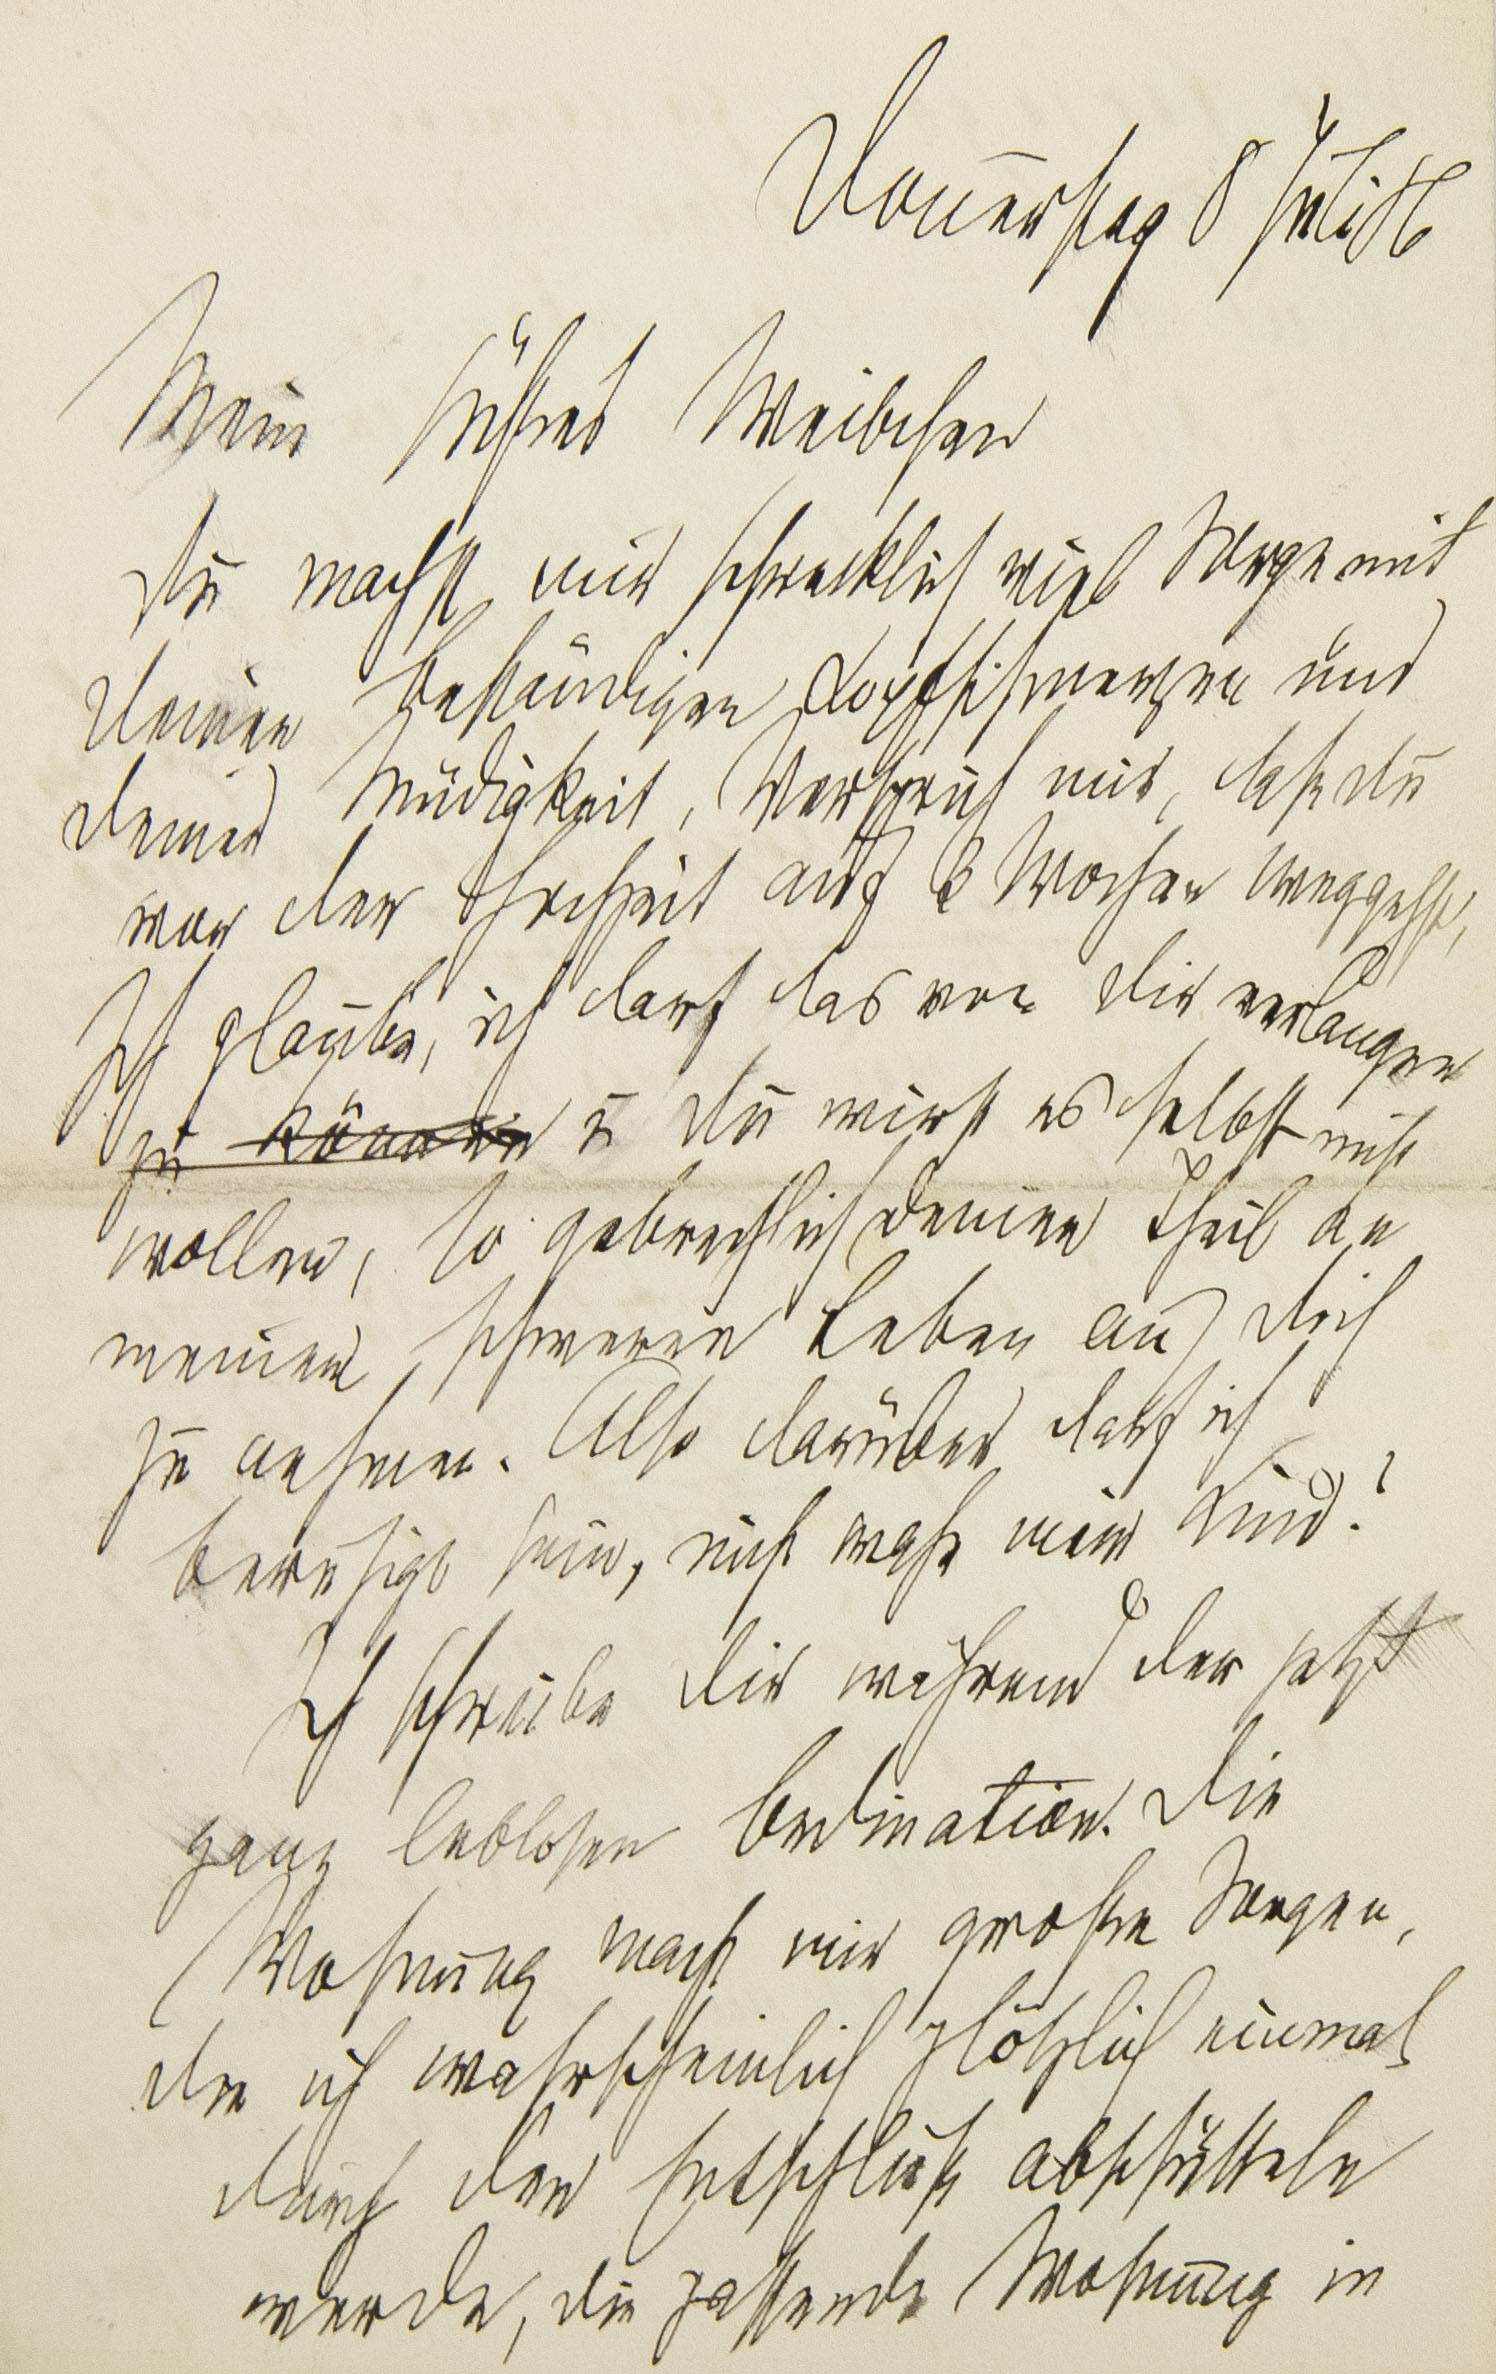 Donnerstag 8 Juli 86
Mein süßes Weibchen
Du machst mir schrecklich viel Sorge mit
Deinen beständigen Kopfschmerzen und
Deiner Müdigkeit, Versprich mir, daß Du
vor der Hochzeit auf 3 Wochen weggehst,
Ich glaube, ich darf das von Dir verlangen
zu können u Du wirst es selbst nicht
wollen, so gebrechlich Deinen Theil an
meinem schweren Leben auf Dich
zu nehmen. Also darüber darf ich
beruhigt sein, nicht wahr mein Kind?
Ich schreibe Dir während der jetzt
ganz leblosen Ordination. Die
Wohnung macht mir große Sorgen,
die ich wahrscheinlich plötzlich einmal
durch den Entschluß abschütteln
werde, die passende Wohnung in